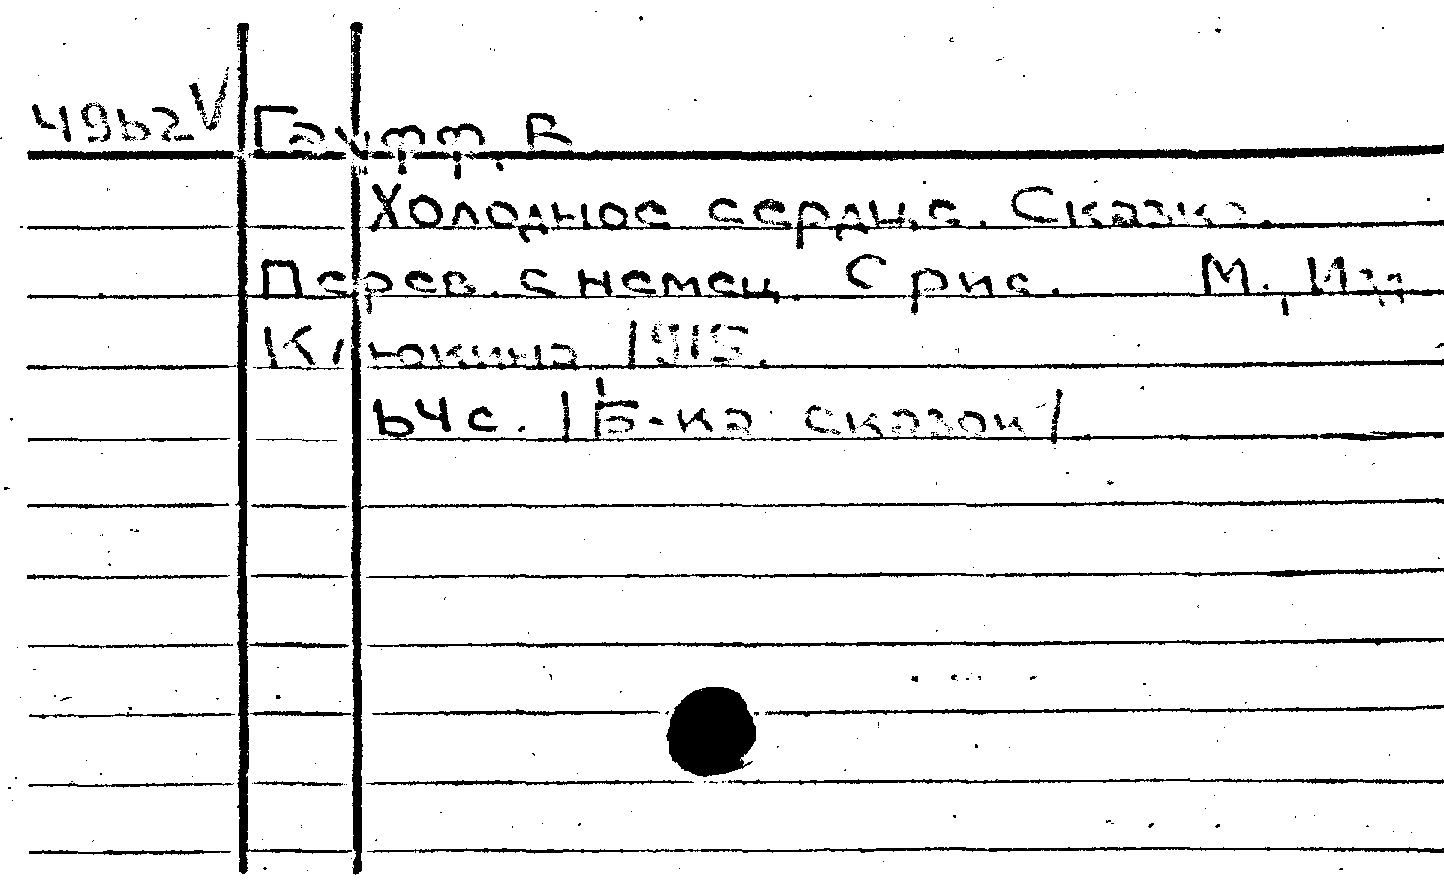 4962 V Гауфф, В
Холодное сердце. Сказка.
Перев. с немец. С рис. М., Изд.
Клюкина 1915.
64 с. /Б-ка сказок/